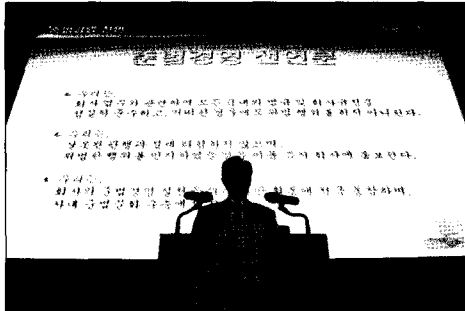 준법경영 선언문
우리는,
회사 업무와 관련하여 모든 국내외 법규 및 회사규정을
준수하고, 어떠한 경우에도 위법 행위를 하지 아니한다.
우리는,
잘못된 관행과 일체 타협하지 않으며,
위법한 행위를 인지하였을 경우 이를 즉시 회사에 통보한다.
우리는,
회사의 준법경영 적극 동참하며,
사내 준법문화 구축에